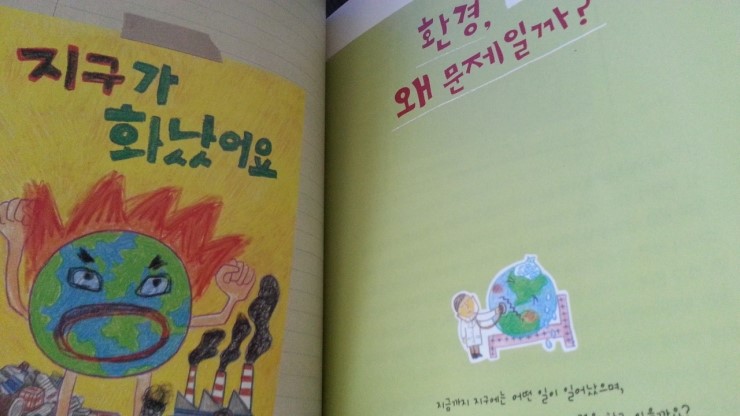 지구가
화났어요
환경,
왜 문제일까?
지금까지 지구에는 어떤 일이 일어났으며,